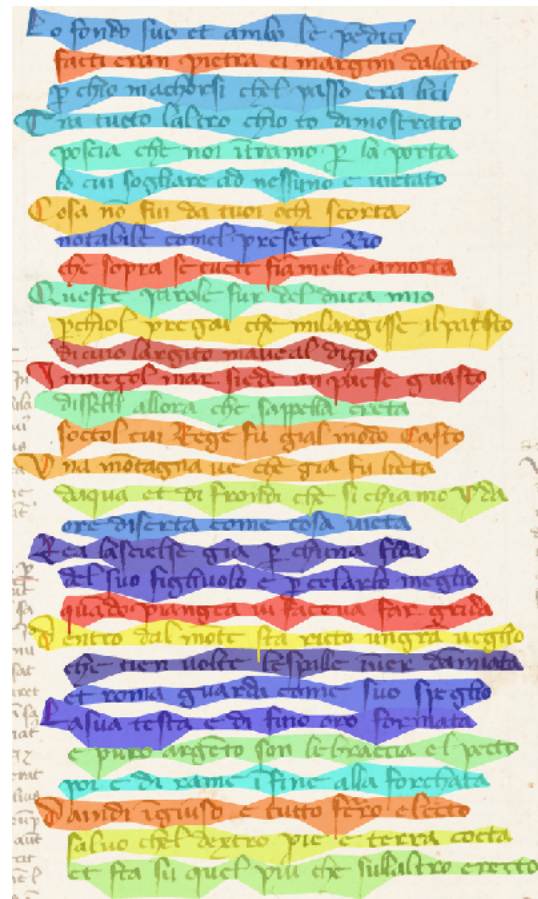 Lo fondo suo et ambo le pēdici
facti eran pietra ei margini dalato
ꝑ chio machorsi chel passo era lici
Tra tucto laltro chio to dimostrato
poscia che noi ītramo ꝑ la porta
lo cui sogliare ad nessuno e uietato
Cosa nō fu da tuoi ochi scorta
notabile comel presēte Rio
che sopra se tucte fiāmelle amorta
Queste parole fur del duca mio
ꝑchiol pregai che milargisse il pasto
di cui largito maueal disio
In meçol mar siede un paese guasto
disselli allora che sappella creta
soctol cui Rege fu gial mōdo Casto
Una mōtagna ue che gia fu lieta
daqua et di frondi che si chiamo yda
ore diserta come cosa uieta
Rea lascielse gia ꝑ chuna fida
del suo figliuolo e ꝑ celarlo meglio
quādo piangea ui faceua far grida
Dentro dal mōte sta ricto ungrā ueglio
che uen uolte le spalle īuer damiata
et roma guarda come suo speglio
La sua testa e di fino oro formata
e puro argēto son le braccia el pecto
poi e di rame īfine alla forchata
Daindi īgiuso e tutto ferro electo
saluo chel dextro pie e terra cocta
et sta su quel piu che sullaltro erecto